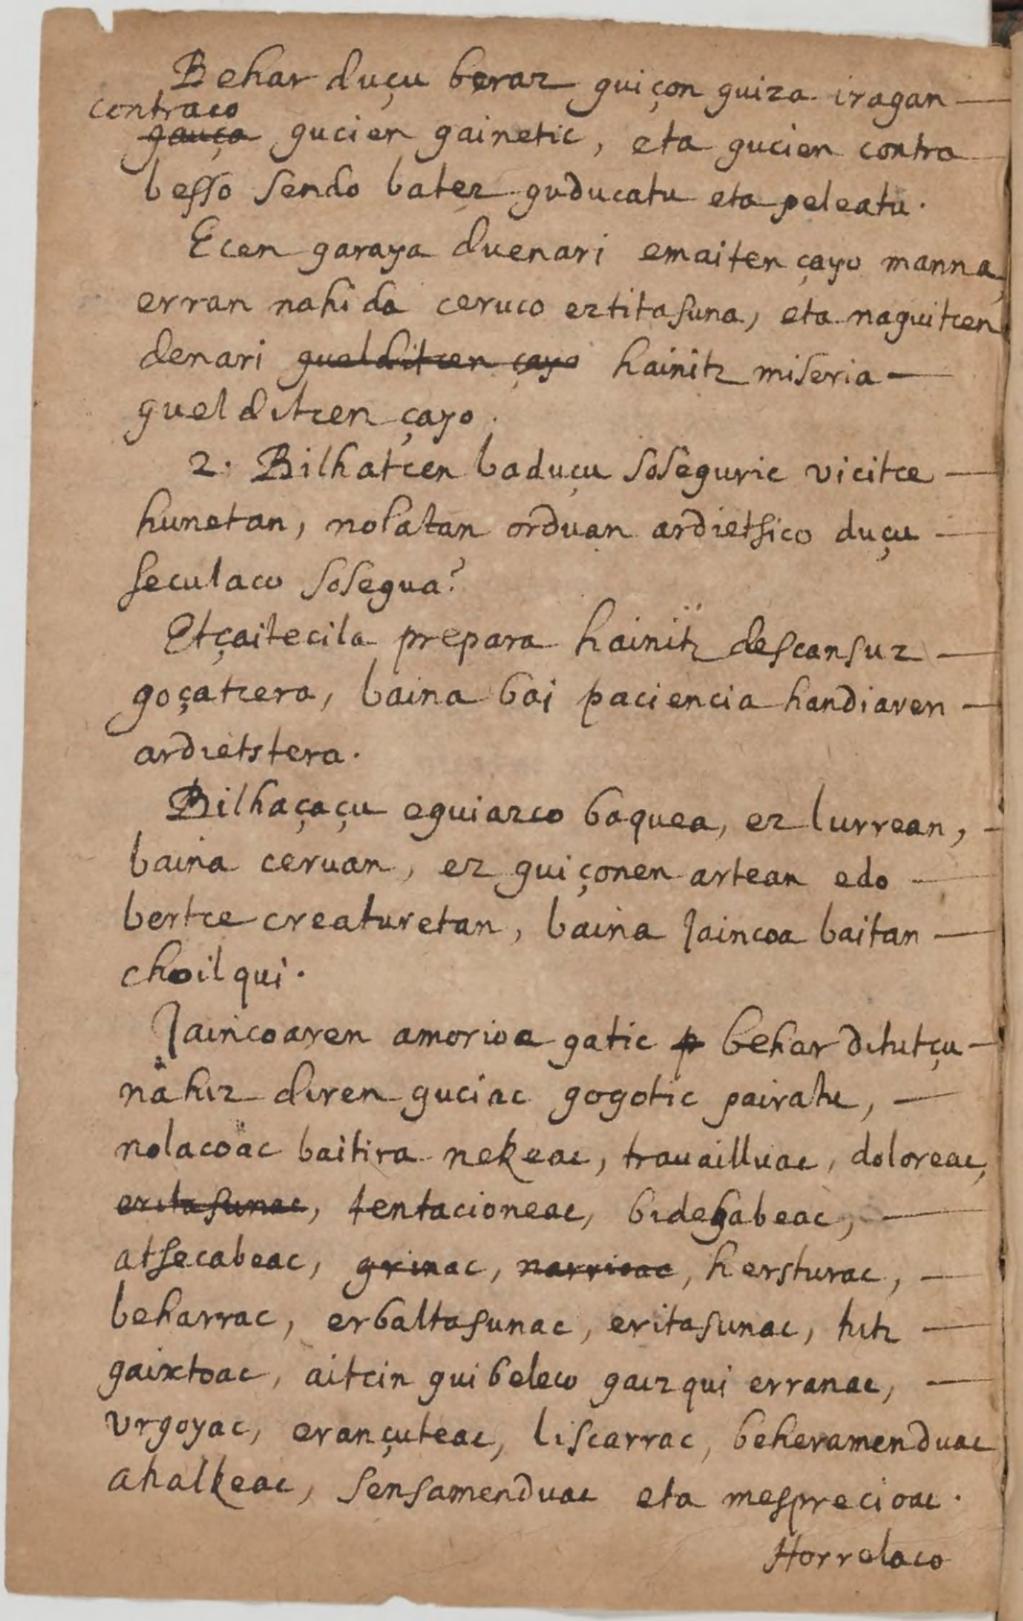 Behar duçu beraz guiçon guiza iragan —
contraco
gauça gucien gainetic, eta gucien contra
besso sendo batez guducatu eta peleatu.
Ecen garaya duenari emaiten çayo manna,
erran nahi da ceruco eztitasuna, eta naguitcen
denari guelditcen çayo hainitz miseria —
guelditcen çayo.
2. Bilhatcen baduçu soseguric vicitce —
hunetan, nolatan orduan ardietsico duçu —
seculaco sosegua?
Etçaitecila prepara hainitz descansuz —
goçatcera, baina bai paciencia handiaren —
ardietstera.
Bilhaçaçu eguiazco baquea, ez lurrean, —
baina ceruan, ez guiçonen artean edo —
bertce creaturetan, baina Jaincoa baitan —
choilqui.
Jaincoaren amorioa gatic p behar ditutçu —
nahiz diren guciac gogotic pairatu, —
nolacoac baitira nekeac, trauailluac, doloreac,
eritasunac, tentacioneac, bidegabeac, —
atsecabeac, grinac, narrioac, hersturac, —
beharrac, erbaltasunac, eritasunac, hitz —
gaixtoac, aitcin guibeleco gaizqui erranac, —
vrgoyac, erançuteac, liscarrac, beheramenduac
ahalkeac, sensamenduac eta mesprecioac.
Horrelaco